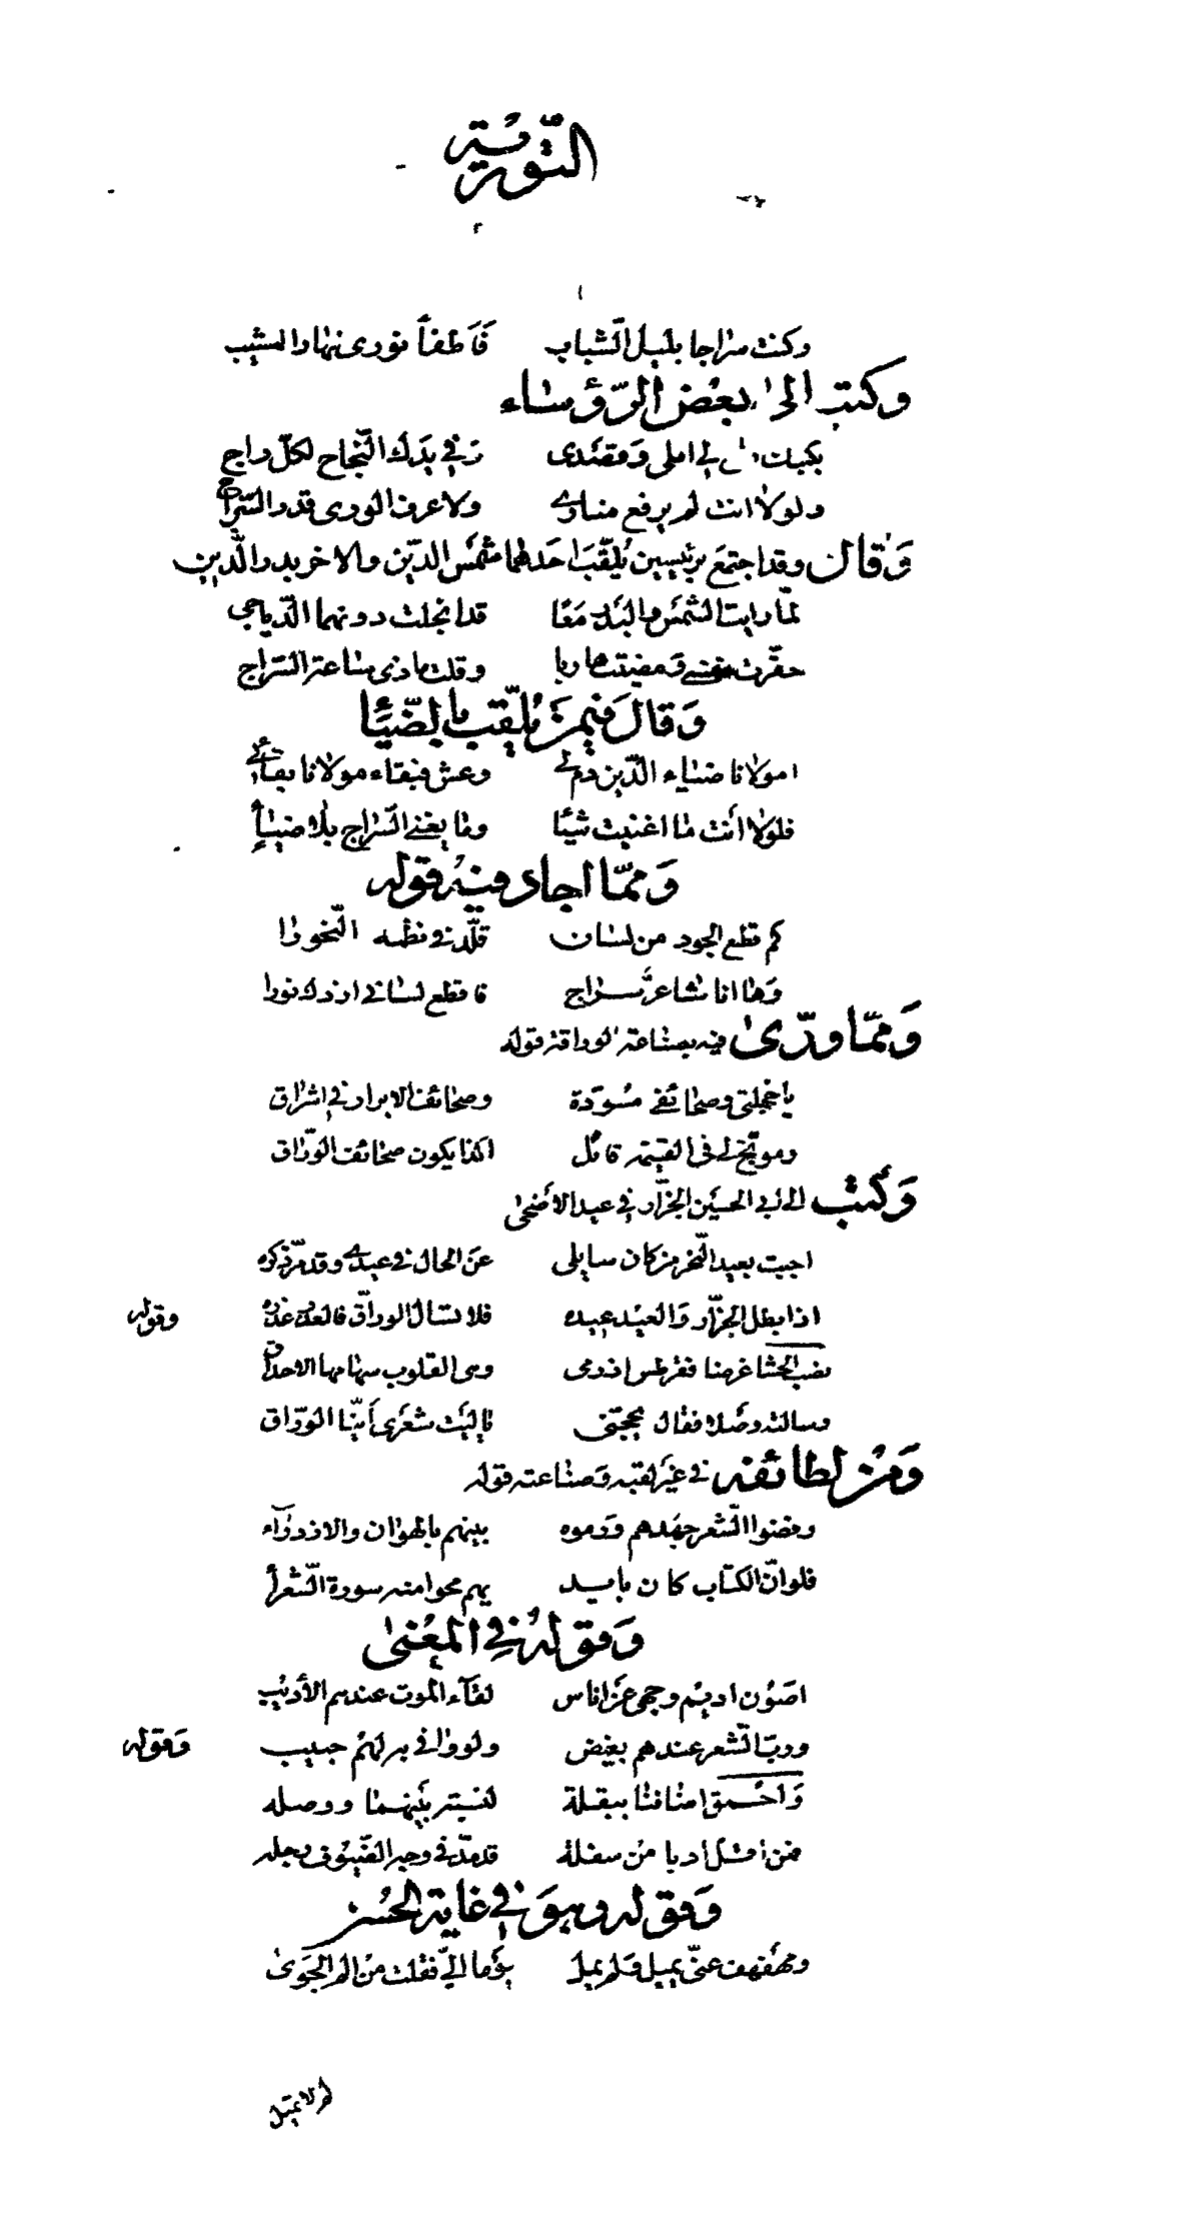 التورية
وكنت سراجا بليل الشباب فاطفأ نورى نهار المشيب
وكتب الى بعض الرؤساء
املى وقصدى وفي يدك النجاح لكل راج
ولولا انت لم يرفع منارى ولا عرف الورى قدر السراج
وقال وقد اجتمع برئيسين يلقب احدهما شمس الدين والاخر بدر الدين
لما رايت الشمس والبدر معا قد انجلت دونهما الدياجى
حقرت نفسى ومضيت هاربا وقلت ماذى ساعة السراج
وقال فيمن يلقب بالضيا
امولانا ضياء الدين دم لى وعش فبقاء مولانا بقائى
فلولا أنت ما اغنيت شيئا وما يغنى السراج بلا ضياء
ومما اجاد فيه قوله
كم قطع الجود من لسان قلد فى نظمه النحورا
وها انا شاعر سراج فاقطع لسانى ازدك نورا
ومما ورى فيه بصناعة الوراقة قوله
يا خجلتى وصحائفى مسودة وصحائف الابرار في اشراق
وموبخ لى فى القيمة قائل اكذا يكون صحائف الوراق
وكتب الى ابى الحسين الجزار في عيد الاضحى
اجبت بعيد النحر من كان سايلى عن الحال فى عيدى وقد مر ذكره
اذا بطل الجزار والعيد عيده فلا تسال الوراق فالعذر عذره وقوله
نصب الحشا غرضا فقرطس اذ رمى ومى القلوب سهامها الاحداق
وسالته وصلا فقال بحجتى يا ليت شعرى أينا الوراق
ومن لطائفه فى غير لقبه وصناعته قوله
رفضوا الشعر جهدهم ورموه بينهم بالهوان والازدرآء
فلو ان الكتاب كان بايديهم محوا منه سورة الشعرا
وقوله في المعنى
اصون اديم وجهى عن اناس لقآء الموت عندهم الأديب
ورب الشعر عندهم بغيض ولو وافى به لهم حبيب وقوله
واحمق اضافنا ببقلة لنسبة بينهما ووصله
فمن اقل ادبا من سفلة قد مد فى وجه الضيوف رجله
وقوله وهو في غاية الحسن
ومهفهف عنى يميل ولم يمل يوما الي فقلت من الم الجوى
لم لا تميل